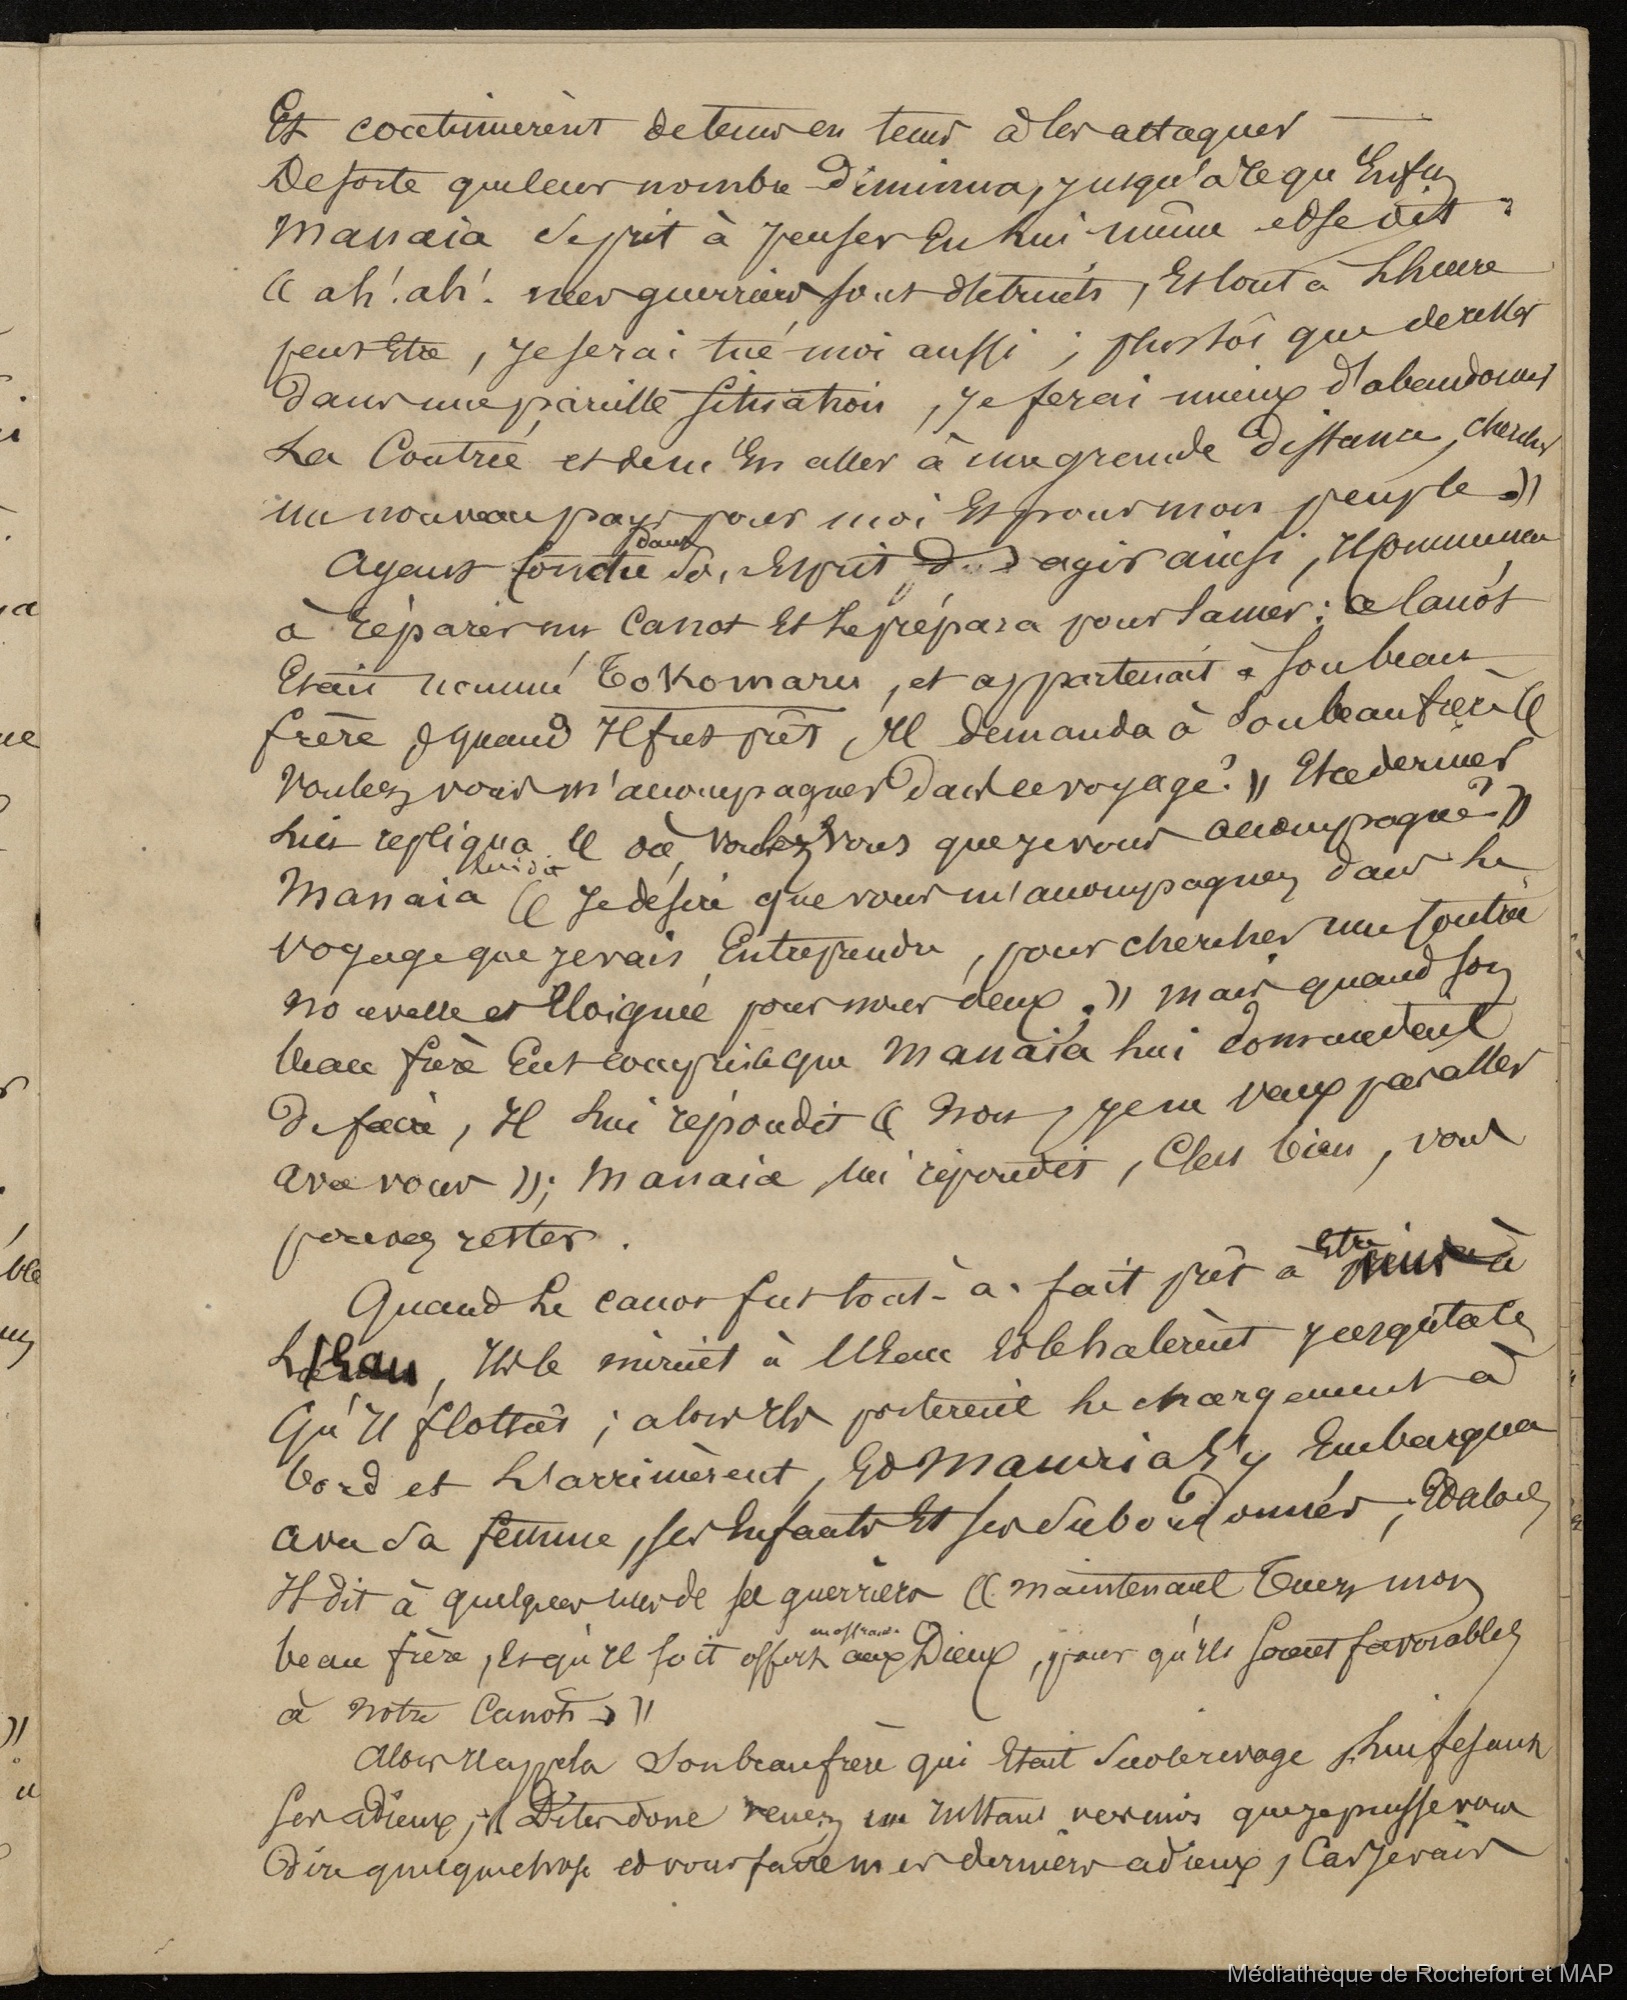 Et continuèrent de tems en tems à les attaquer
De sorte que leur nombre Diminua, jusqu'à ce qu'Enfin
Manaia se prit à penser En lui même et se dit :
« ah ! ah ! mes guerriers sont détruits, Et tout à L'heure
peut Etre, Je serai tué moi aussi ; plustôt que de rester
Dans une pareille Situation, Je ferai mieux d'abandonner
La Contrée et de m'En aller à une grande Distance, chercher
un nouveau pays pour moi Et pour mon peuple. »
dans
Ayant Son Esprit agir ainsi, Il commença
à réparer un Canot Et Le prépara pour La mer : Ce Canot
Etait nommé Tokomaru, et appartenait à Son beau
frère & quand Il fut prêt, Il demanda à Son beau frère «
Voulez vous m'accompagner Dans ce voyage ? » Et ce dernier
Lui repliqua « où voulez vous que je vous accompagne ? »
lui dit
Manaia « Je désire que vous m'accompagniez dans Le
voyage que je vais Entreprendre, pour chercher une Contrée
nouvelle et Eloignée pour nous deux. » Mais quand Son
beau frère Eut compris ce que Manaia Lui Demandait
De faire, Il Lui répondit « Non, je ne veux pas aller
avec vous » ; Manaia lui répondit, C'est bien, vous
pouvez rester.
Etre
Quand Le canot fut tout-à-fait prêt à mis à
L'Eau, Ils le mirent à L'Eau Et le halèrent jusqu'à ce
Qu'Il flottât ; alors Ils portèrent Le chargement à
bord et L'arrimèrent, Et Manaia S'y Embarqua
avec Sa femme, ses Enfants Et ses Subordonnés ; Et alors
Il dit à quelques uns de ses guerriers « Maintenant Tuez mon
en offrande
beau frère, Et qu'Il soit offert aux Dieux, pour qu'Ils Soient favorables
à Notre Canot. »
Alors Il appela Son beau frère qui Etait Sur le rivage, Lui fesant
Ses adieux ; « Dites donc venez un Instant vers moi que je puisse vous
Dire quelque chose et vous faire mes derniers adieux, Car Je vais
Médiathèque de Rochefort et MAP